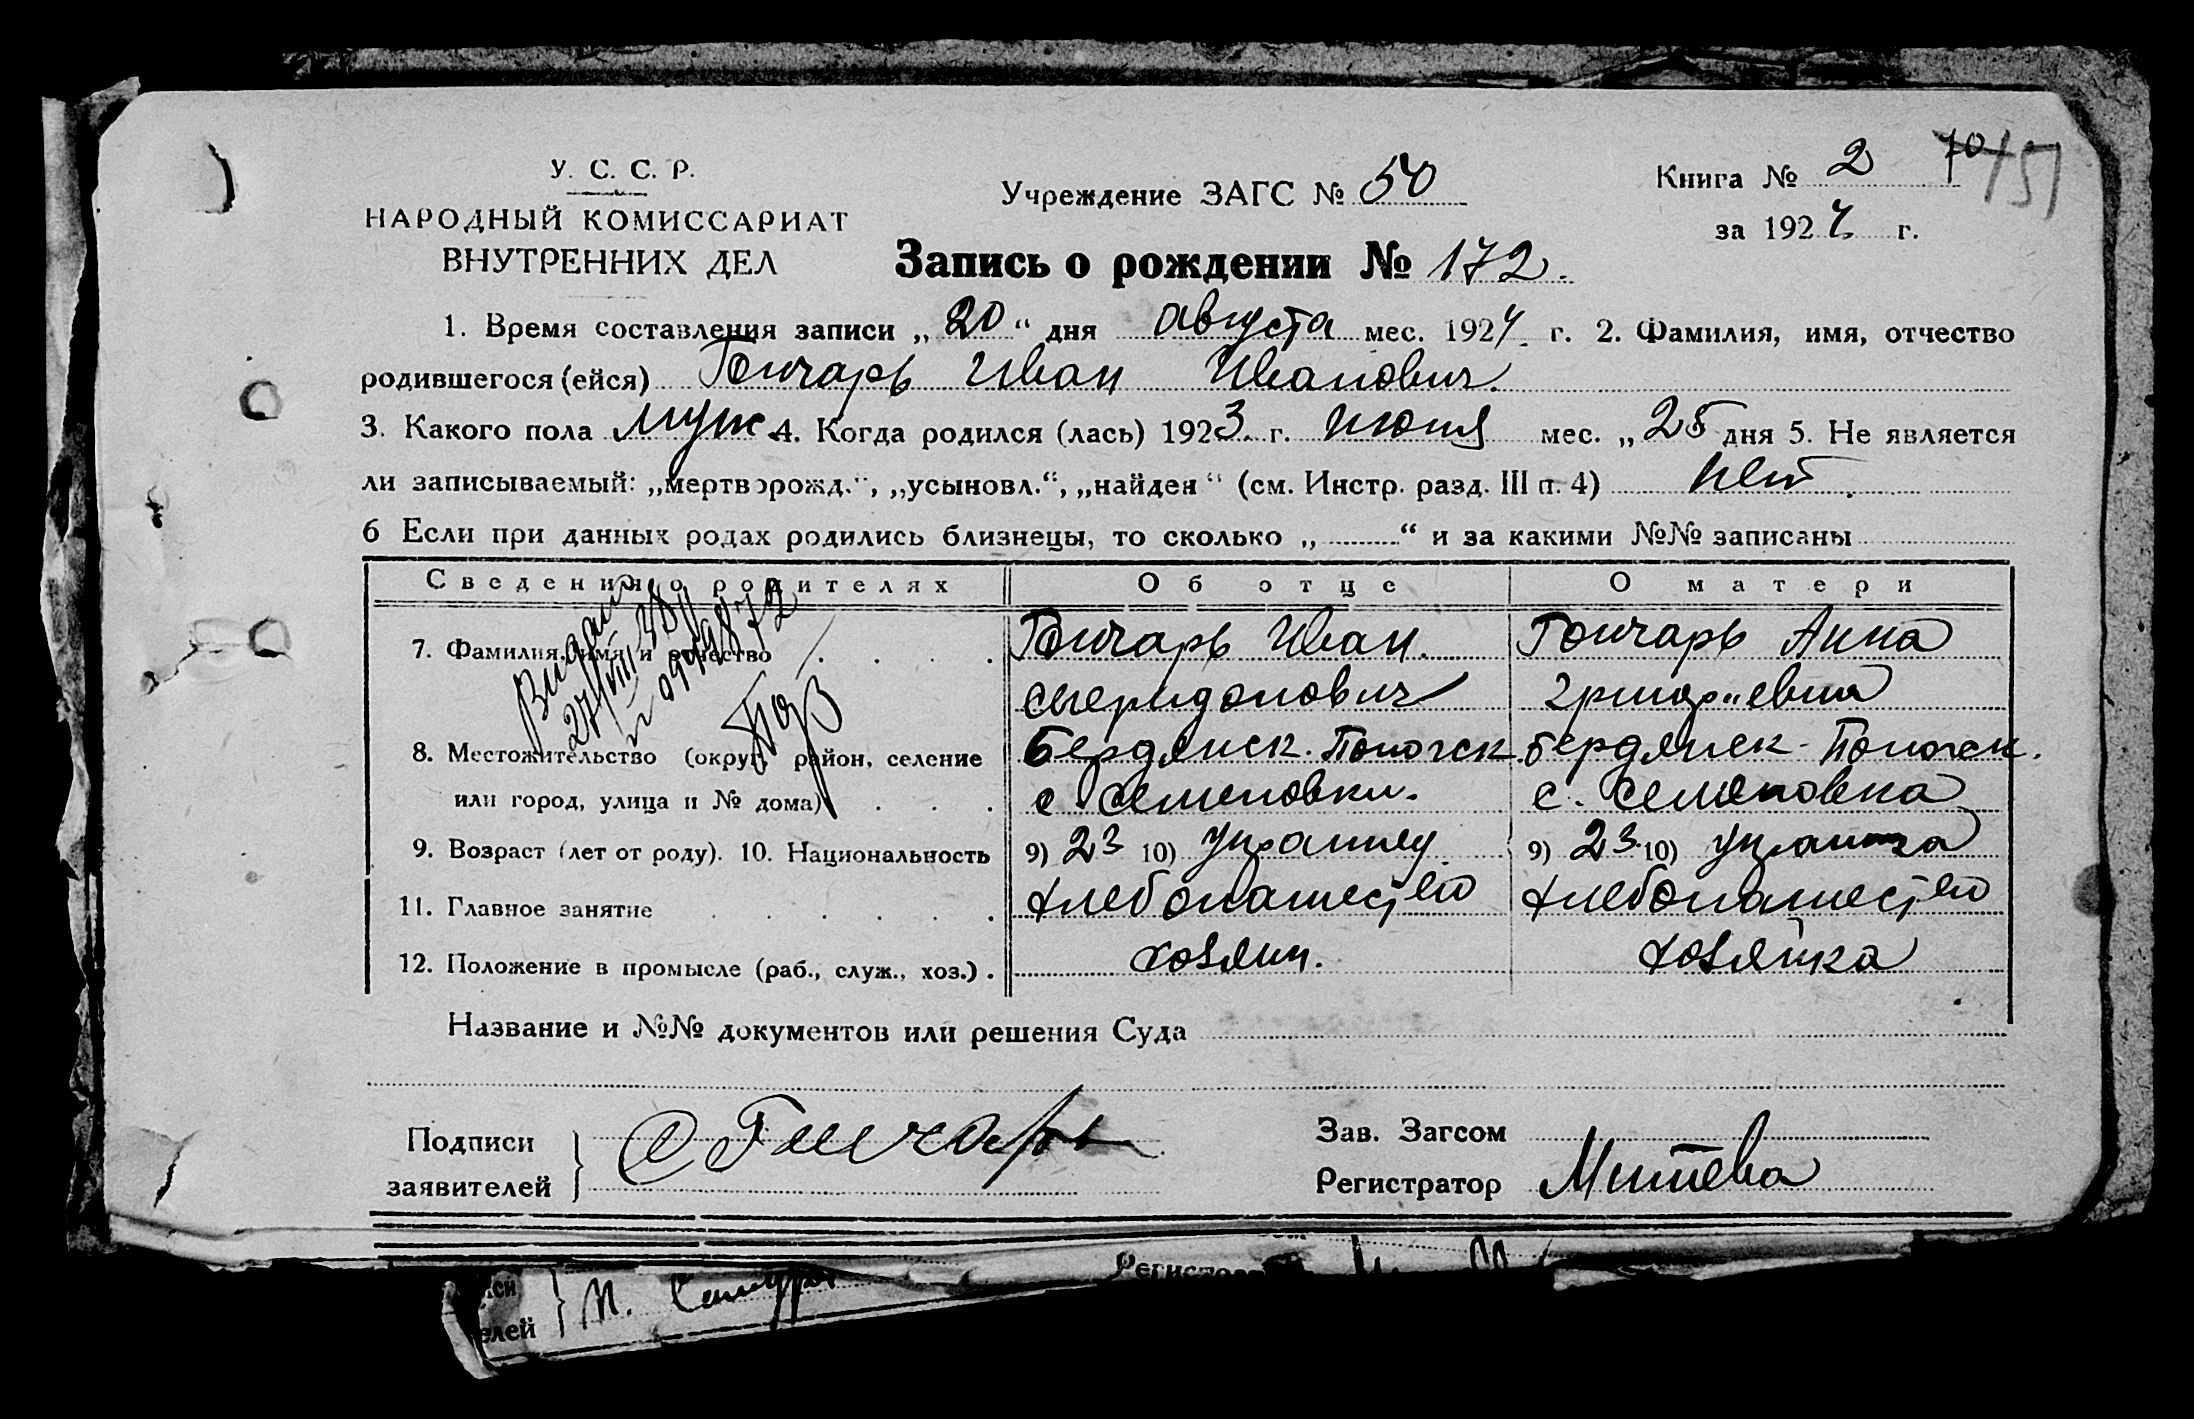 У. С. С. Р.
НАРОДНЫЙ КОМИССАРИАТ
ВНУТРЕННИХ ДЕЛ
Учреждение ЗАГС № 50
Книга № 2 70 151
за 1924 г.
Запись о рождении № 172.
1. Время составления записи „20“ дня августа мес. 1924 г. 2. Фамилия, имя, отчество
родившегося (ейся) Гончарь Иван Иванович.
3. Какого пола муж. 4. Когда родился (лась) 1923 г. июня мес. „25 дня 5. Не является
ли записываемый: „мертворожд.“, „усыновл.“, „найден“ (см. Инстр. разд. III п. 4) нет.
6 Если при данных родах родились близнецы, то сколько „ “ и за какими №№ записаны
Сведения о родителях Об отце О матери
7. Фамилия, имя и отчество Гончарь Иван. Гончарь Анна
спередонович григориевна
8. Местожительство (округ, район, селение Бердянск. Попогск. Бердянск. Попогск.
или город, улица и № дома) с. Семеновки. с. Семеновка
9. Возраст (лет от роду). 10. Национальность 9) 23 10) Украинец. 9) 23. 10) Украинка
11. Главное занятие хлебопашество хлебопашество
12. Положение в промысле (раб., служ., хоз.) хозяин. хозяйка
Видано
27/VIII 28
Название и №№ документов или решения Суда
Подписи
заявителей
С Гончарь
Зав. Загсом
Регистратор Митева
елей